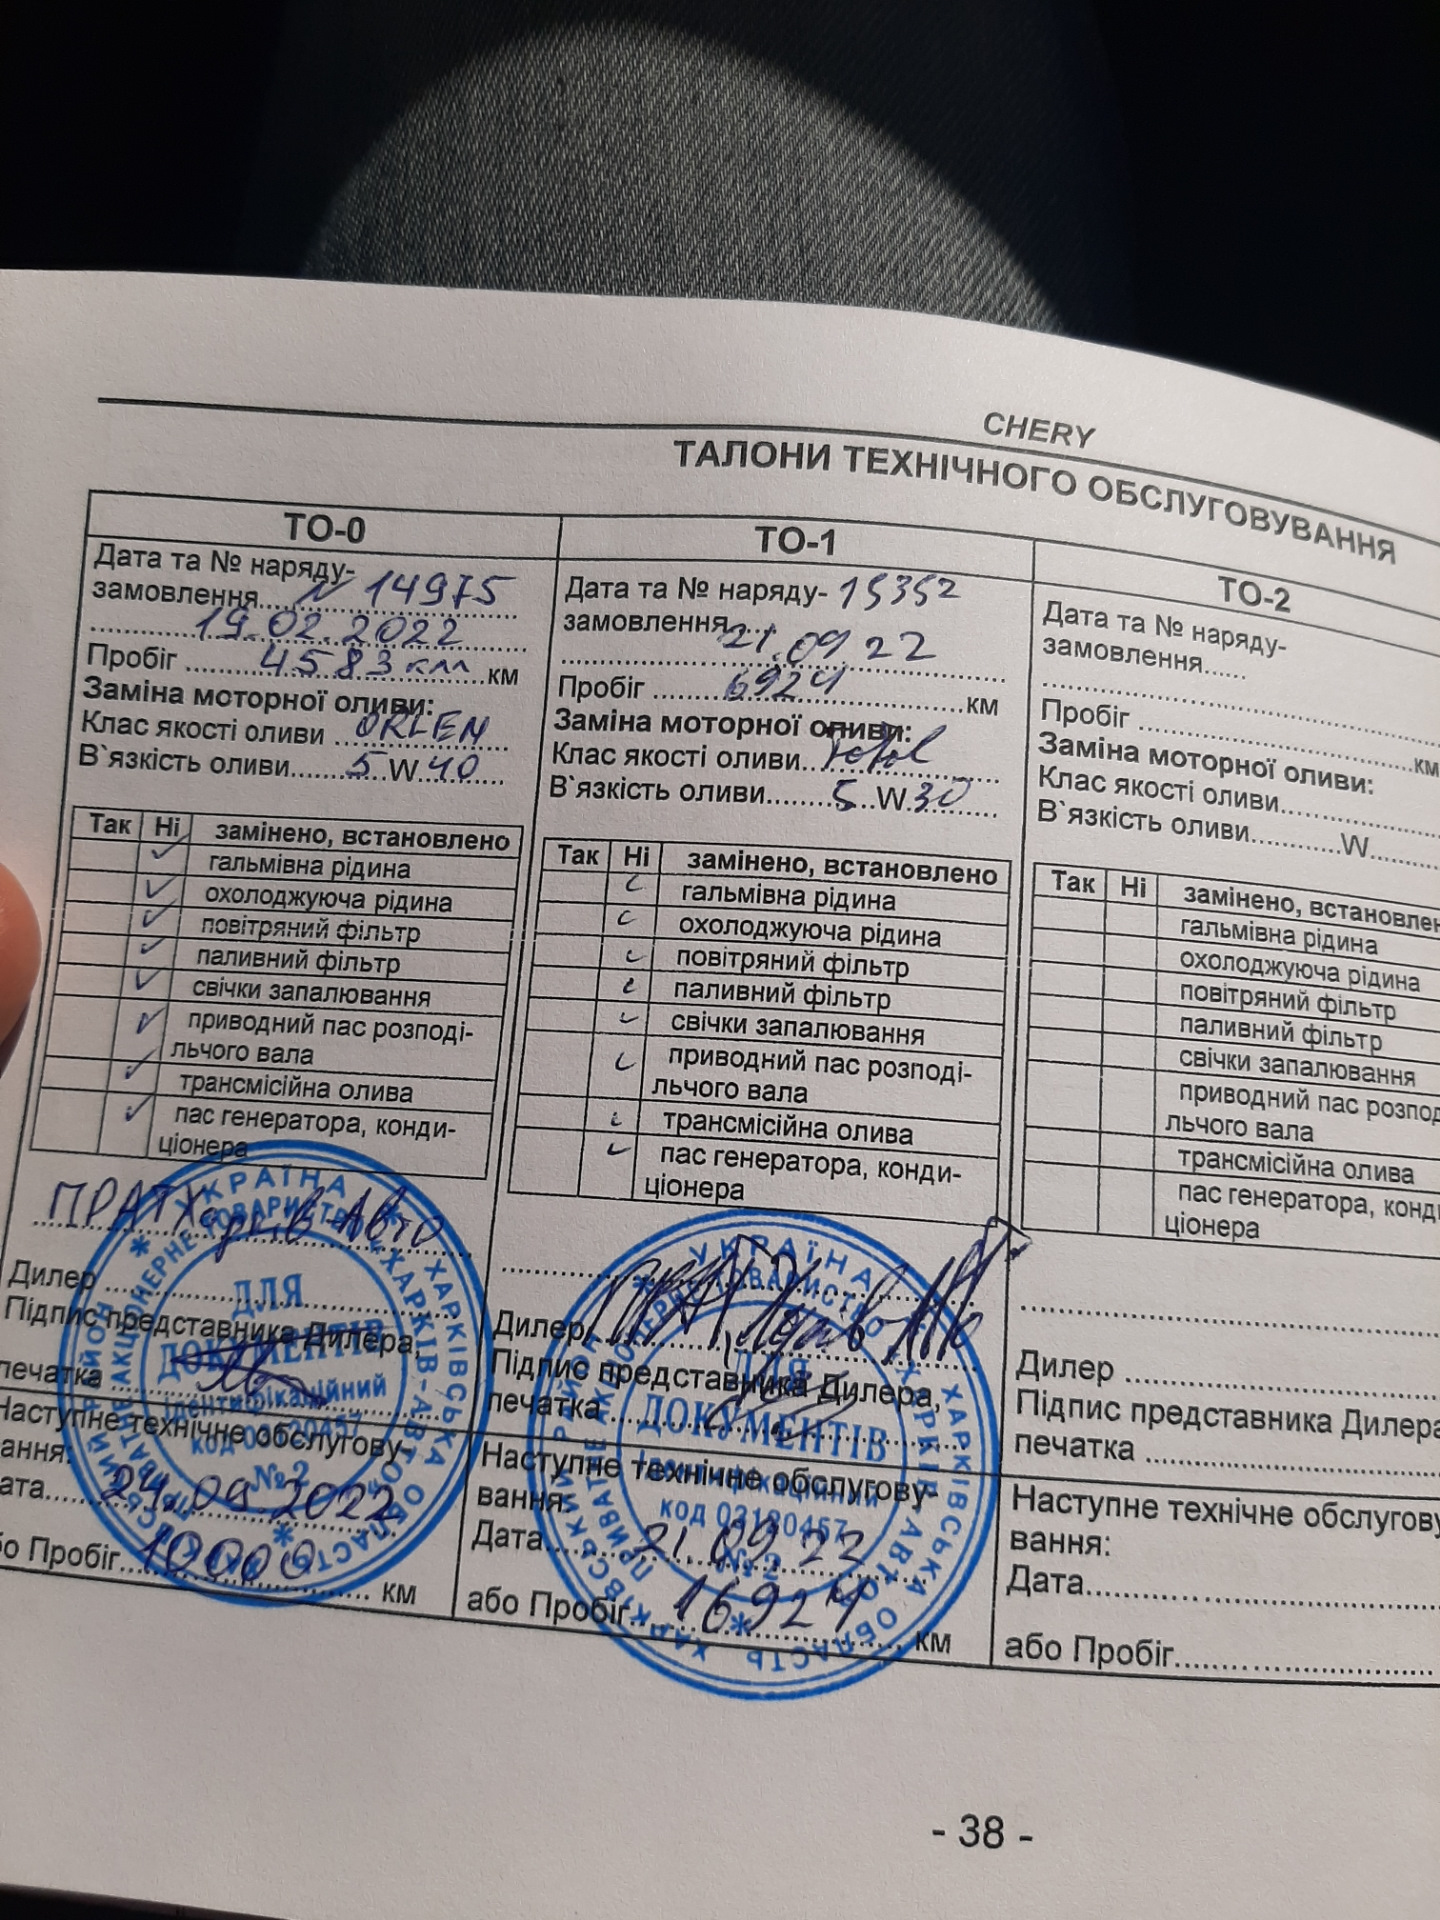 CHERY
ТАЛОНИ ТЕХНІЧНОГО ОБСЛУГОВУВАННЯ
ТО-0
Дата та № наряду-
замовлення.... № 14975
19.02.2022
Пробіг 4583 км км
Заміна моторної оливи:
Клас якості оливи ORLEN
В`язкість оливи 5 W 40
Так Ні замінено, встановлено
гальмівна рідина
охолоджуюча рідина
повітряний фільтр
паливний фільтр
свічки запалювання
приводний пас розподі-
льчого вала
трансмісійна олива
пас генератора, конди-
ціонера
ПРАТ Харків-Авто
Дилер
Підпис представника Дилера,
печатка
Наступне технічне обслугову-
вання:
Дата 24.09.2022
або Пробіг 10000 км
ТО-1
Дата та № наряду- 15352
замовлення
21.09 22
Пробіг 6924 км
Заміна моторної оливи:
Клас якості оливи Total
В`язкість оливи 5 W 30
Так Ні замінено, встановлено
гальмівна рідина
охолоджуюча рідина
повітряний фільтр
паливний фільтр
свічки запалювання
приводний пас розподі-
льчого вала
трансмісійна олива
пас генератора, конди-
ціонера
Дилер ПРАТ
Підпис представника Дилера,
печатка
Наступне технічне обслугову-
вання:
Дата 21.09.23
або Пробіг 16924 км
ТО-2
Дата та № наряду-
замовлення
Пробіг км
Заміна моторної оливи:
Клас якості оливи
В`язкість оливи W
Так Ні замінено, встановлен
гальмівна рідина
охолоджуюча рідина
повітряний фільтр
паливний фільтр
свічки запалювання
приводний пас розпод
льчого вала
трансмісійна олива
пас генератора, конд
ціонера
Дилер
Підпис представника Дилера
печатка
Наступне технічне обслугову
вання:
Дата
або Пробіг
УКРАЇНА * ХАРКІВСЬКА ОБЛАСТЬ
ПРИВАТНЕ АКЦІОНЕРНЕ ТОВАРИСТВО «ХАРКІВ-АВТО»
ДЛЯ
ДОКУМЕНТІВ
ідентифікаційний
код 03120457
№2
УКРАЇНА * ХАРКІВСЬКА ОБЛАСТЬ
«ХАРКІВ-АВТО»
ДЛЯ
ДОКУМЕНТІВ
код 03120457
№2
- 38 -